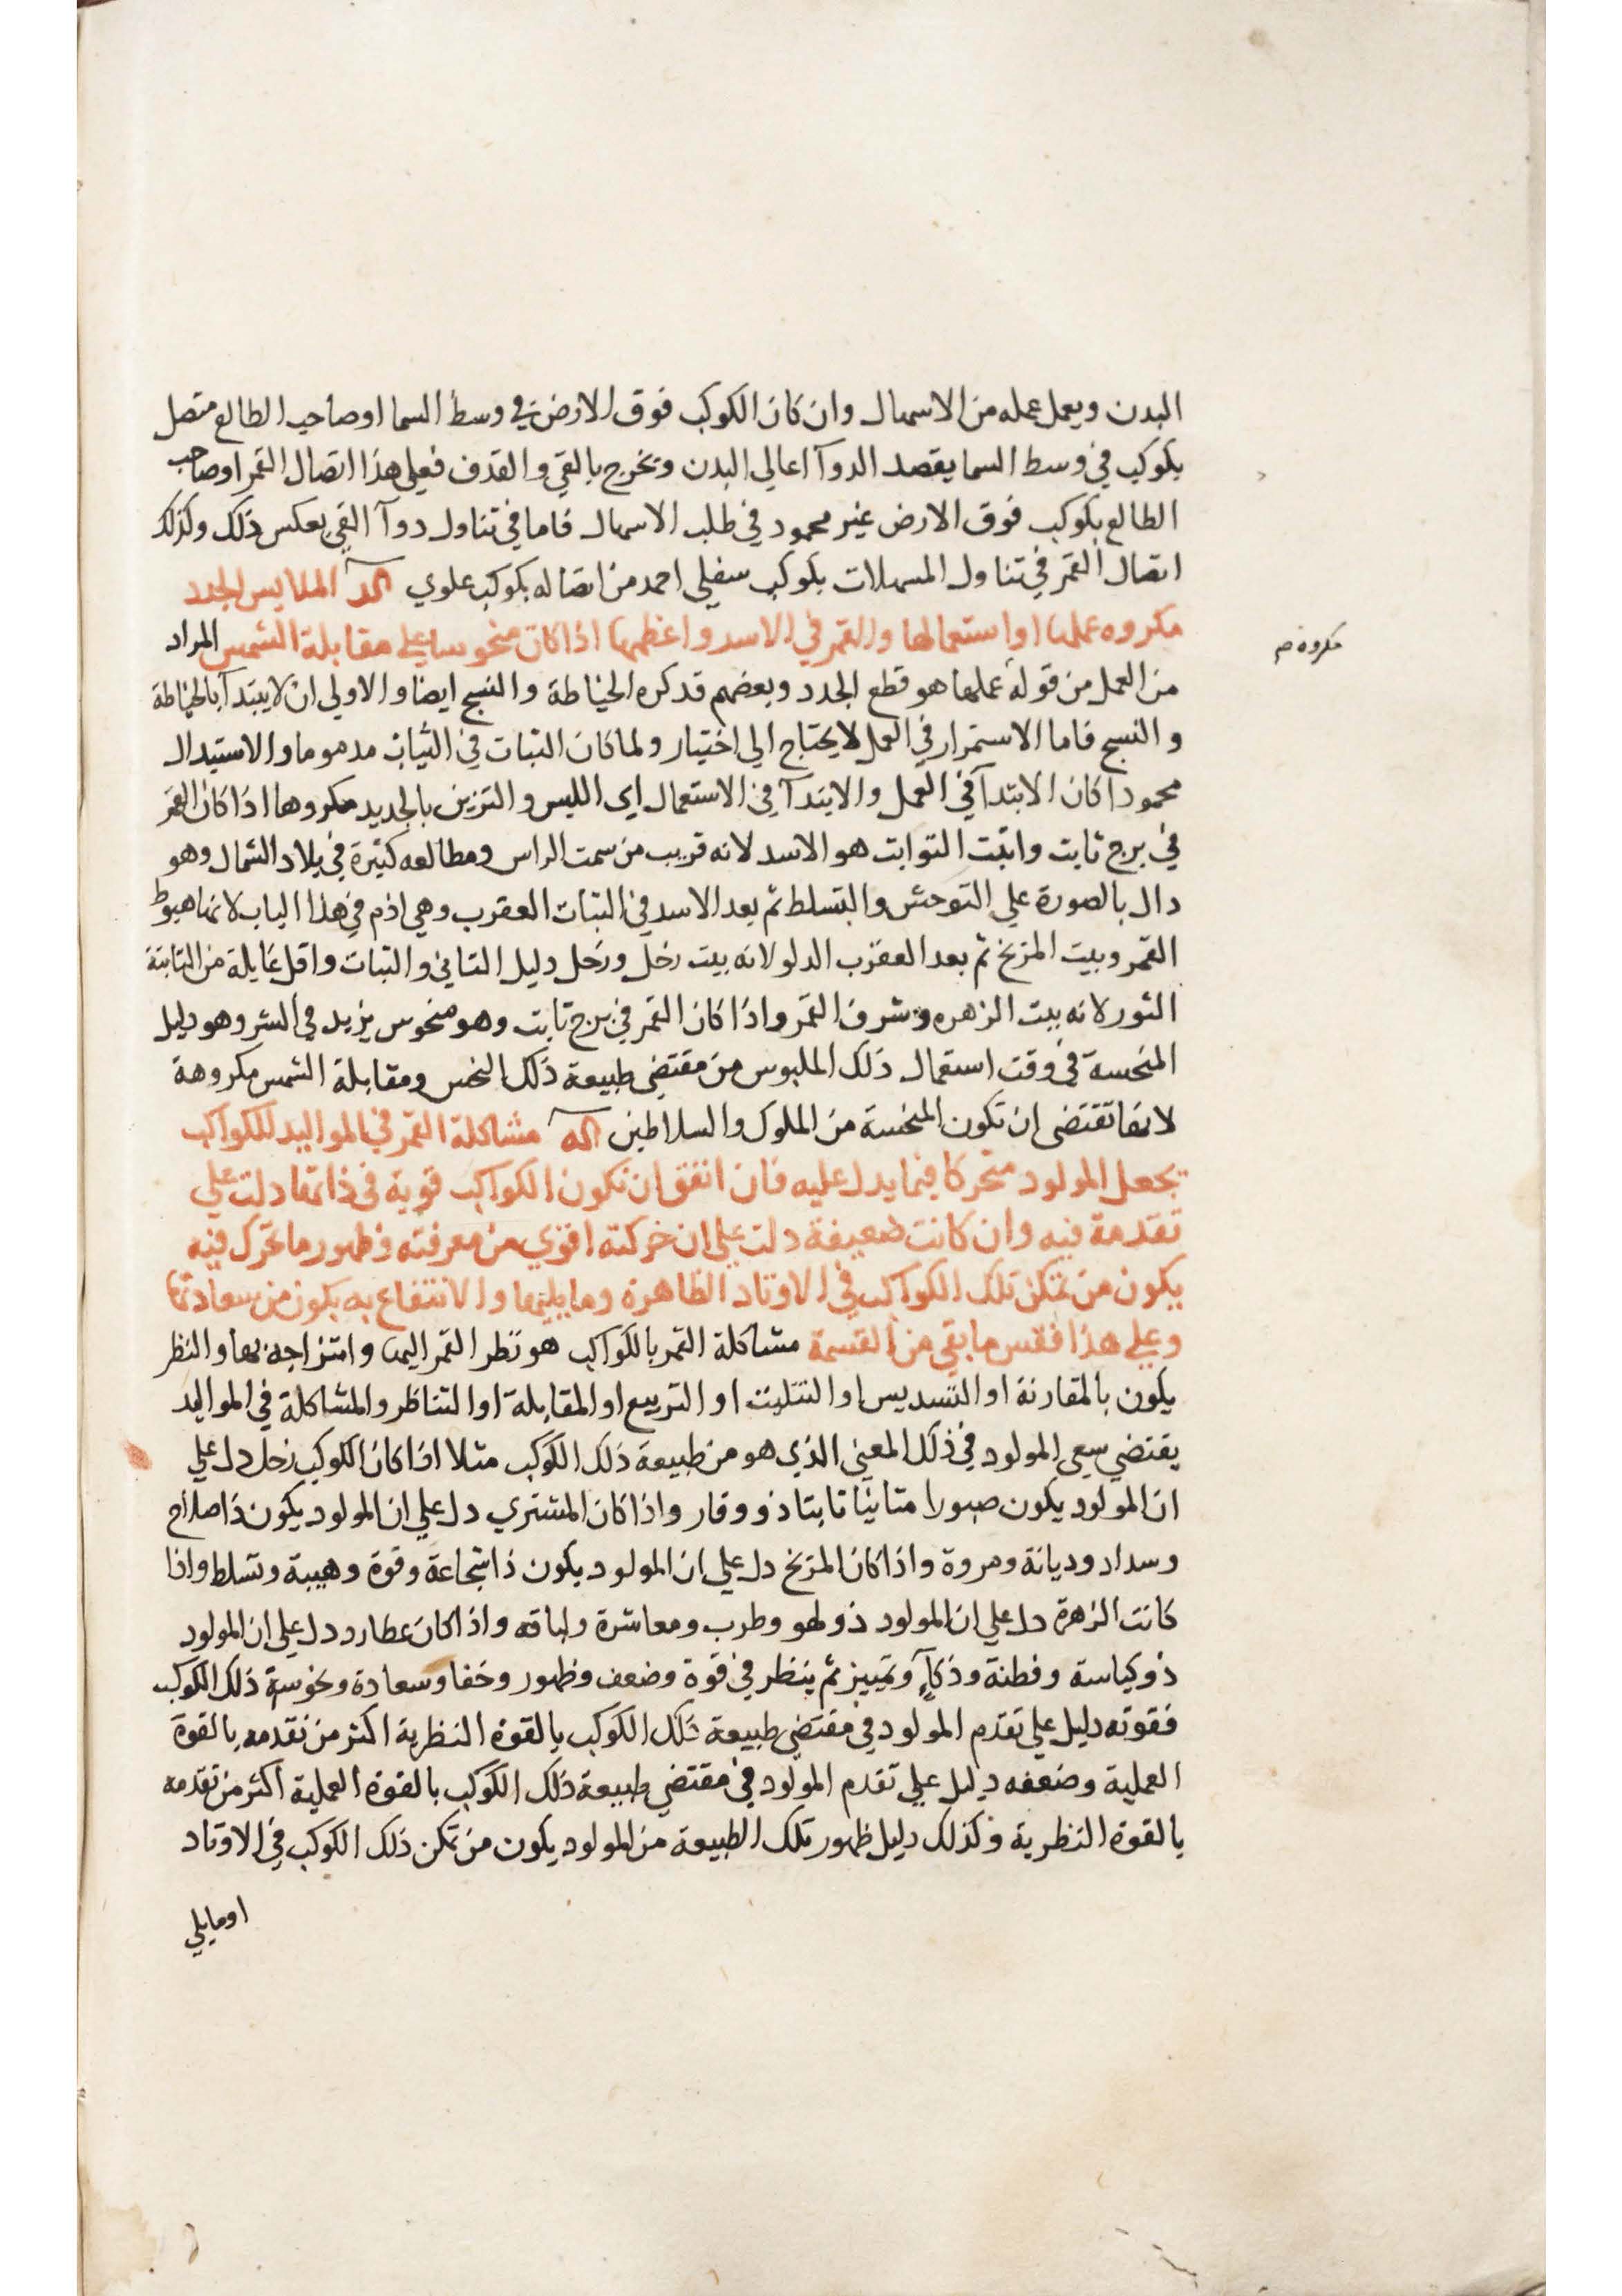 البدن ويعمل عمله من الاسهال وان كان الكوكب فوق الارض في وسط السما اوصاحب الطالع متصل
بكوكب في وسط السما يقصد الدوآ اعالي البدن ويخرج بالقي والقدف فعلي هذا اتصال القمر اوصاحب
الطالع بكوكب فوق الارض غير محمود في طلب الاسهال فاما في تناول دوآ القي بعكس ذلك وكذلك
اتصال القمر في تناول المسهلات بكوكب سفلي احمد من اتصاله بكوكب علوي كد الملابس الجدد
مكروه عملها او استعمالها والقمر في الاسد واعظمها اذا كان منحوسا علي مقابلة الشمس المراد
مكروه م
من العمل من قوله عملها هو قطع الجدد وبعضهم قد كره الخياطة والنسج ايضا والاولي ان لا يبتدآ بالخياطة
والنسج فاما الاستمرار في العمل لا يحتاج الي اختيار ولما كان الثبات في الثياب مدموما والاستبدال
محمودا كان الابتدآ في العمل والابتدآ في الاستعمال اي اللبس والتزين بالجديد مكروها اذا كان القمر
في برج ثابت واثبت الثوابت هو الاسد لانه قريب من سمت الراس ومطالعه كثيرة في بلاد الشمال وهو
دال بالصورة علي التوحش والتسلط ثم بعد الاسد في الثبات العقرب وهي اذم في هذا الباب لانها هبوط
القمر وبيت المريخ ثم بعد العقرب الدلو لانه بيت زحل وزحل دليل التاني والثبات واقل غايلة من الثابتة
الثور لانه بيت الزهره وشرف القمر واذا كان القمر في برج ثابت وهو منحوس يزيد في الشر وهو دليل
المنحسة في وقت استعمال ذلك الملبوس من مقتضي طبيعة ذلك النحس ومقابلة الشمس مكروهة
لانها تقتضي ان تكون المنحسة من الملوك والسلاطين كه مشاكلة القمر في المواليد للكواكب
يجعل المولود متحركا فيما يدل عليه فان اتفق ان تكون الكواكب قوية في ذاتها دلت علي
تقدمة فيه وان كانت ضعيفة دلت علي ان حركته اقوي من معرفته وظهور ما تحرك فيه
يكون من تمكن تلك الكواكب في الاوتاد الظاهرة وما يليها والانتفاع به يكون من سعادتها
وعلي هذا فقس ما بقي من القسمة مشاكلة القمر بالكواكب هو نظر القمر اليها وامتزاجه بها والنظر
يكون بالمقارنة او التسديس او التثليث او التربيع او المقابلة او التناظر والمشاكلة في المواليد
يقتضي سعي المولود في ذلك المعني الذي هو من طبيعة ذلك الكوكب مثلا اذا كان الكوكب زحل دل علي
ان المولود يكون صبورا متانيا ثابتا ذو وقار واذا كان المشتري دل علي ان المولود يكون ذا صلاح
وسداد وديانة ومروة واذا كان المريخ دل علي ان المولود يكون ذا شجاعة وقوة وهيبة وتسلط واذا
كانت الزهرة دل علي ان المولود ذو لهو وطرب ومعاشرة ولباقه واذا كان عطارد دل علي ان المولود
ذو كياسة وفطنة وذكآء وتمييز ثم ينظر في قوة وضعف وظهور وخفا وسعادة ونحوسة ذلك الكوكب
فقوته دليل علي تقدم المولود في مقتضي طبيعة ذلك الكوكب بالقوة النظرية اكثر من تقدمه بالقوة
العملية وضعفه دليل علي تقدم المولود في مقتضي طبيعة ذلك الكوكب بالقوة العملية اكثر من تقدمه
بالقوة النظرية وكذلك دليل ظهور تلك الطبيعة من المولود يكون من تمكن ذلك الكوكب في الاوتاد
او مايلي